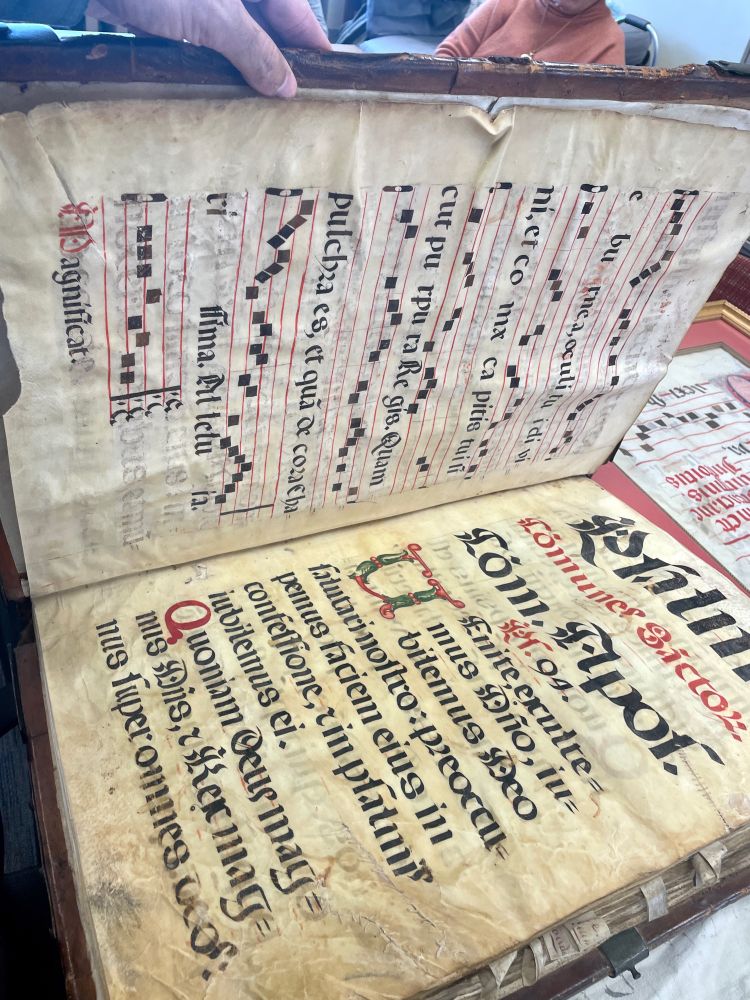 e bu rnea, oculi tui di vi
ni, et co mæ ca pitis tui si
cut pu rpu ra Re gis. Quam
pulchra es, et quā de cora cha=
ri ssima. Al lelu ia.
Magnificat.
Psalm
Cōmunes Sāctor.
Cōm. Apost.
Ps. 94.
VEnite, exulte=
mus Dño, iu=
bilemus Deo
salutari nostro: preoccu=
pemus faciem eius in
confessione, & in psalmis
iubilemus ei.
Quoniam Deus mag=
nus Dñs, & Rex mag=
nus super omnes deos.